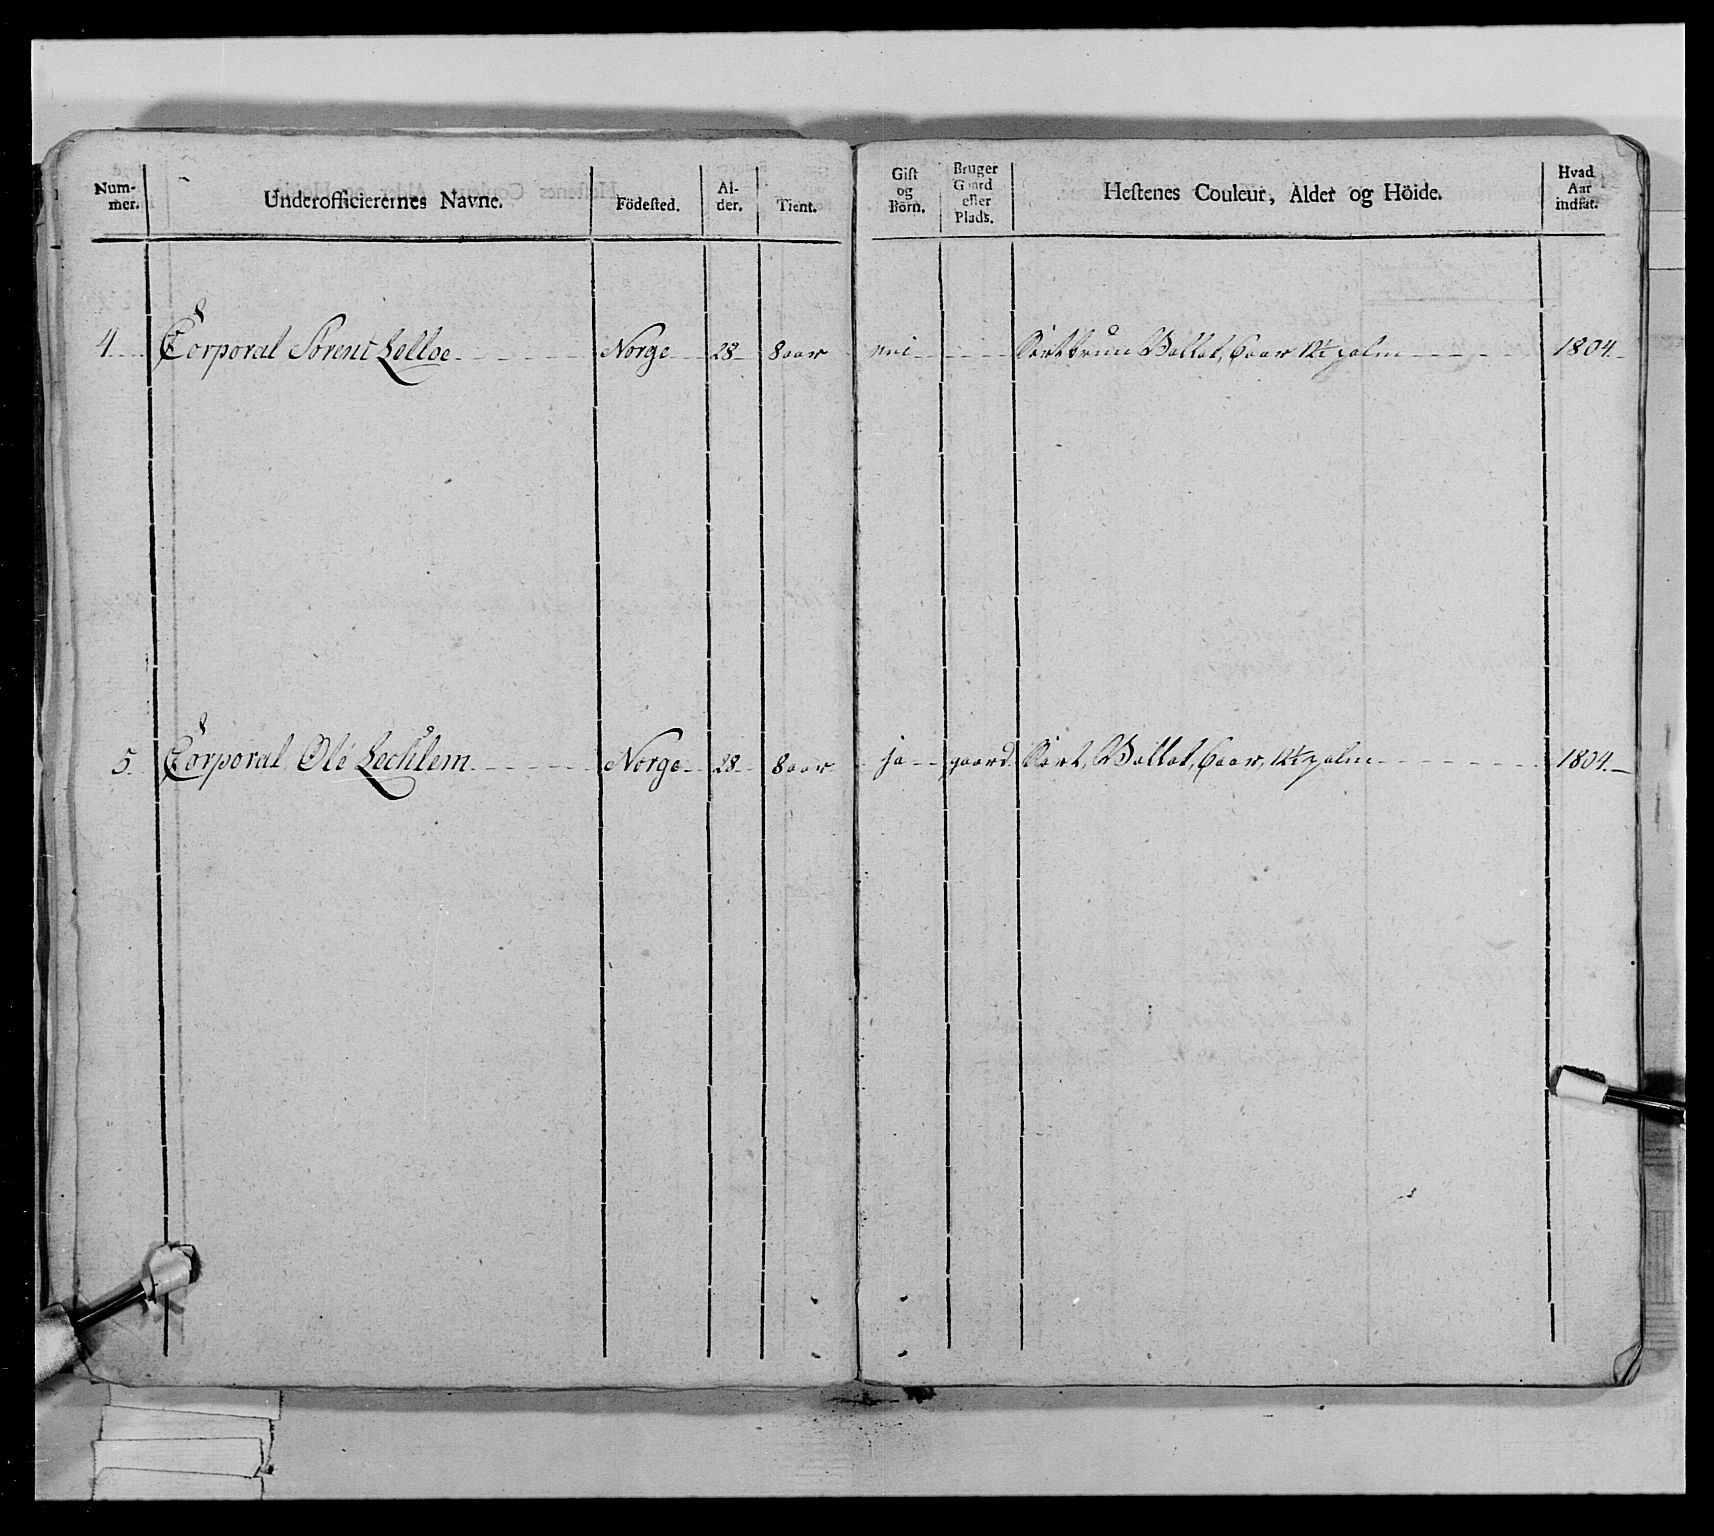 Num-
mer.
Underofficierernes Navne.
Födested.
Al-
der.
Tient.
Gift
og
Börn.
Bruger
Gaard
eller
Plads.
Hestenes Couleur, Alder og Höide.
Hvad
Aar
indsat.
4. Corporal Sörent Lelloe Norge 28 8 aar nei Sortbrun Vallak, 6 aar 12¼ palm 1804.
5. Corporal Ole Lechlem Norge 28 8 aar ja gaard Sort, Vallak, 6 aar, 12¼ palm 1804.